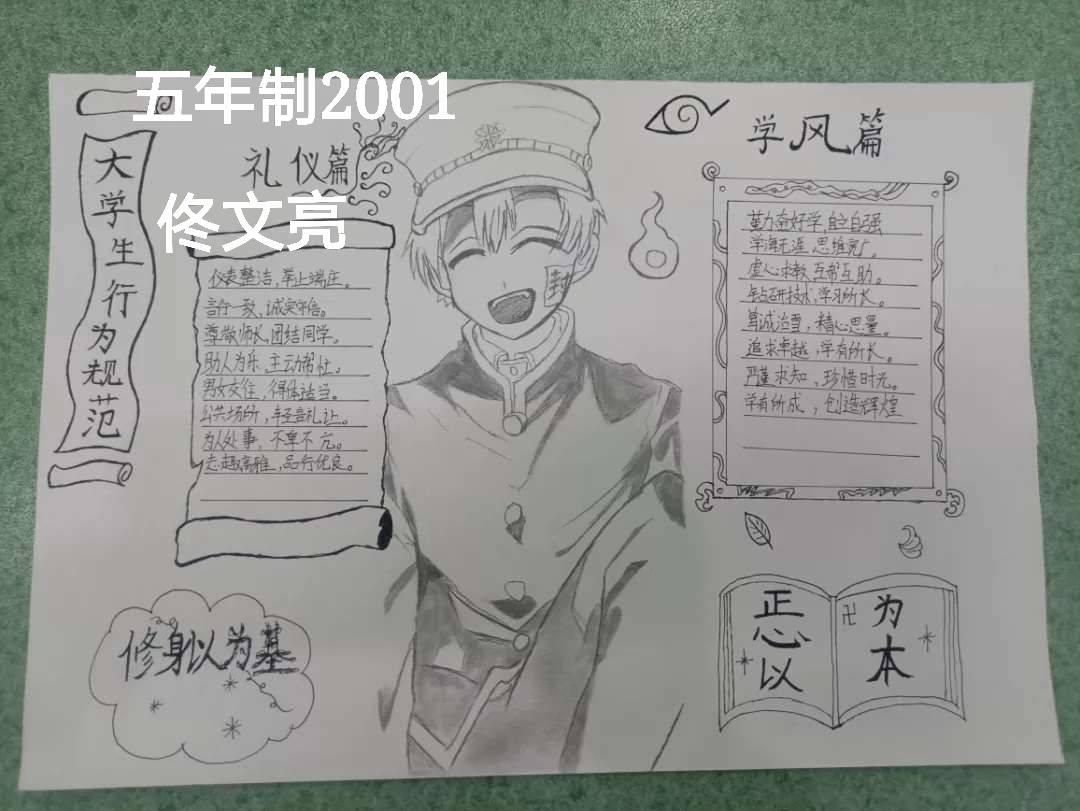 五年制2001
佟文亮
大学生行为规范
礼仪篇
仪表整洁,举止端庄。
言行一致,诚实守信。
尊敬师长,团结同学。
助人为乐,主动帮忙。
男女交往,得体适当。
公共场所,轻音礼让。
为人处事,不卑不亢。
志趣高雅,品行优良。
封
学风篇
勤奋好学,自立自强
学海无涯,思维宽广。
虚心求教,互帮互助。
钻研技术,学习所长。
笃诚治图,精心思量。
追求卓越,学有所长。
严谨求知,珍惜时光。
学有所成,创造辉煌
修身以为基
正心以
卍为本